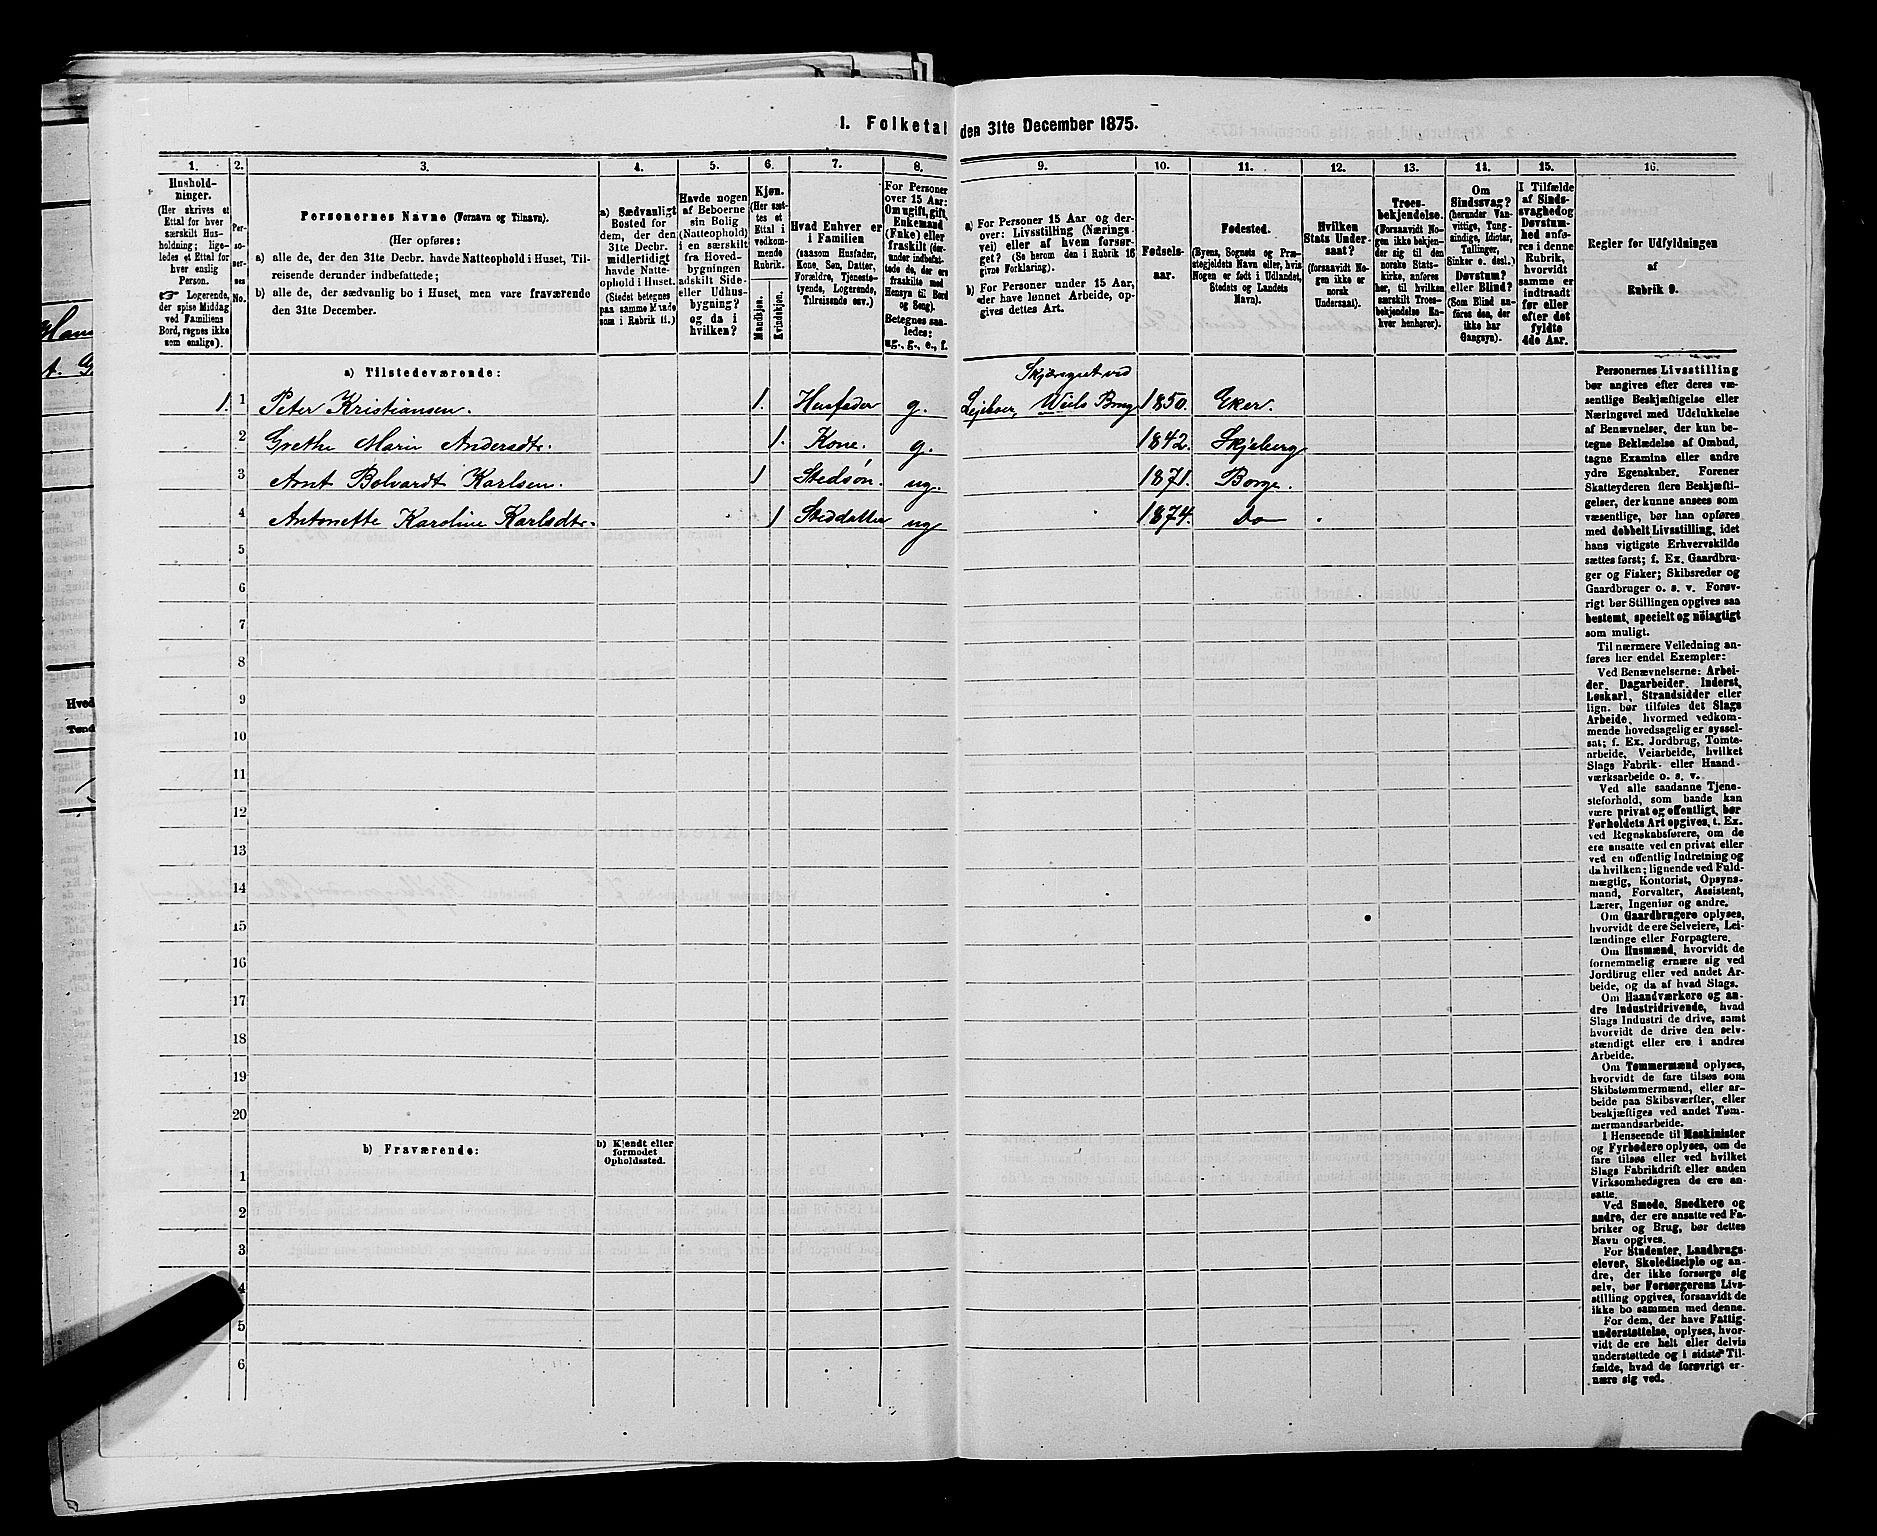 I. Folketal den 31te December 1875.
1. 2. 3. 4. 5. 6. 7. 8. 9. 10. 11. 12. 13. 14. 15. 16.
Hushold-
ninger.
(Her skrives et
Ettal for hver
særskilt Hus-
holdning; lige-
ledes et Ettal for
hver enslig
Person.
☞ Logerende,
der spise Middag
ved Familiens
Bord, regnes ikke
som enslige).
Per-
so-
ner-
nes
No.
Personernes Navne (Fornavn og Tilnavn).
(Her opføres:
a) alle de, der den 31te Decbr. havde Natteophold i Huset, Til-
reisende derunder indbefattede;
b) alle de, der sædvanlig bo i Huset, men vare fraværende
den 31te December.
a) Sædvanligt
Bosted for
dem, der den
31te Decbr.
midlertidigt
havde Natte-
ophold i Huset.
(Stedet betegnes
paa samme Maade
som i Rubrik 11.)
Havde nogen
af Beboerne
sin Bolig
(Natteophold)
i en særskilt
fra Hoved-
bygningen
adskilt Side-
eller Udhus-
bygning?
og da i
hvilken?
Kjøn.
(Her sæt-
tes et
Ettal i
vedkom-
mende
Rubrik.
Mandkjøn.
Kvindekjøn.
Hvad Enhver er
i Familien
(saasom Husfader,
Kone, Søn, Datter,
Forældre, Tjeneste-
tyende, Logerende,
Tilreisende osv.)
For Personer
over 15 Aar:
Om ugift, gift,
Enkemand
(Enke) eller
fraskilt (der-
under indbefat-
tede de, der ere
fraskilte med
Hensyn til Bord
og Seng).
Betegnes saa-
ledes:
ug., g., e., f.
a) For Personer 15 Aar og der-
over: Livsstilling (Nærings-
vei) eller af hvem forsør-
get? (Se herom den i Rubrik 16
givne Forklaring).
b) For Personer under 15 Aar,
der have lønnet Arbeide, op-
gives dettes Art.
Fødsels-
aar.
Fødested.
(Byens, Sognets og Præ-
stegjeldets Navn eller, hvis
Nogen er født i Udlandet,
Stedets og Landets
Navn).
Hvilken
Stats Under-
saat?
(forsaavidt No-
gen ikke er
norsk
Undersaat).
Troes-
bekjendelse.
(Forsaavidt No-
gen ikke bekjen-
der sig til den
norske Stats-
kirke, anføres
her, til hvilken
særskilt Troes-
bekjendelse En-
hver henhører).
Om
Sindssvag?
(herunder Van-
vittige, Tung-
sindige, Idioter,
Tullinger,
Sinker o. desl.)
Døvstum?
eller Blind?
(Som Blind an-
føres den, der
ikke har
Gangsyn).
I Tilfælde
af Sinds-
svaghed og
Døvstum-
hed anfø-
res i denne
Rubrik,
hvorvidt
samme er
indtraadt
før eller
efter det
fyldte
4de Aar.
Regler for Udfyldningen
af
Rubrik 9.
a) Tilstedeværende:
Skjæregut ved
1. 1 Peter Kristiansen. 1. Husfader g. Lejeboer, Wiels Brug 1850. Eker.
2 Grethe Marie Andersdtr. 1. Kone. g. 1842. Skjeberg
3 Arnt Bolvardt Karlsen. 1 Stedsøn. ug. 1871. Borge.
4 Antonette Karoline Karlsdtr. 1 Steddatter ug 1874. Do
5
6
7
8
9
10
11
12
13
14
15
16
17
18
19
20
b) Fraværende: b) Kjendt eller
formodet
Opholdssted.
1
2
3
4
5
6
Personernes Livsstilling
bør angives efter deres væ-
sentlige Beskjæftigelse eller
Næringsvei med Udelukkelse
af Benævnelser, der kun be-
tegne Beklædelse af Ombud,
tagne Examina eller andre
ydre Egenskaber. Forener
Skatteyderen flere Beskjæfti-
gelser, der kunne ansees som
væsentlige, bør han opføres
med dobbelt Livsstilling, idet
hans vigtigste Erhvervskilde
sættes først; f. Ex. Gaardbru-
ger og Fisker; Skibsreder og
Gaardbruger o. s. v. Forøv-
rigt bør Stillingen opgives saa
bestemt, specielt og nøiagtigt
som muligt.
Til nærmere Veiledning an-
føres her endel Exempler:
Ved Benævnelserne: Arbei-
der, Dagarbeider, Inderst,
Løskarl, Strandsidder eller
lign. bør tilføies det Slags
Arbeide, hvormed vedkom-
mende hovedsagelig er syssel-
sat; f. Ex. Jordbrug, Tomte-
arbeide, Veiarbeide, hvilket
Slags Fabrik- eller Haand-
værksarbeide o. s. v.
Ved alle saadanne Tjene-
steforhold, som baade kan
være privat og offentligt, bør
Forholdets Art opgives, t. Ex.
ved Regnskabsførere, om de
ere ansatte ved en privat eller
ved en offentlig Indretning og
da hvilken; lignende ved Fuld-
mægtig, Kontorist, Opsyns-
mand, Forvalter, Assistent,
Lærer, Ingeniør og andre.
Om Gaardbrugere oplyses,
hvorvidt de ere Selveiere, Lei-
lændinge eller Forpagtere.
Om Husmænd, hvorvidt de
fornemmelig ernære sig ved
Jordbrug eller ved andet Ar-
beide, og da af hvad Slags.
Om Haandværkere og an-
dre Industridrivende, hvad
Slags Industri de drive, samt
hvorvidt de drive den selv-
stændigt eller ere i andres
Arbeide.
Om Tømmermænd oplyses,
hvorvidt de fare tilsøs som
Skibstømmermænd, eller ar-
beide paa Skibsværfter, eller
beskjæftiges ved andet Tøm-
mermandsarbeide.
I Henseende til Maskinister
og Fyrbødere oplyses, om de
fare tilsøs eller ved hvilket
Slags Fabrikdrift eller anden
Virksomhedsgren de ere an-
satte.
Ved Smede, Snedkere og
andre, der ere ansatte ved Fa-
briker og Brug, bør dettes
Navn opgives.
For Studenter, Landbrugs-
elever, Skoledisciple og an-
dre, der ikke forsørge sig
selv, bør Forsørgerens Livs-
stilling opgives, forsaavidt de
ikke bo sammen med denne.
For dem, der have Fattig-
understøttelse, oplyses, hvor-
vidt de ere helt eller delvis
understøttede og i sidste Til-
fælde, hvad de forøvrigt er-
nære sig ved.